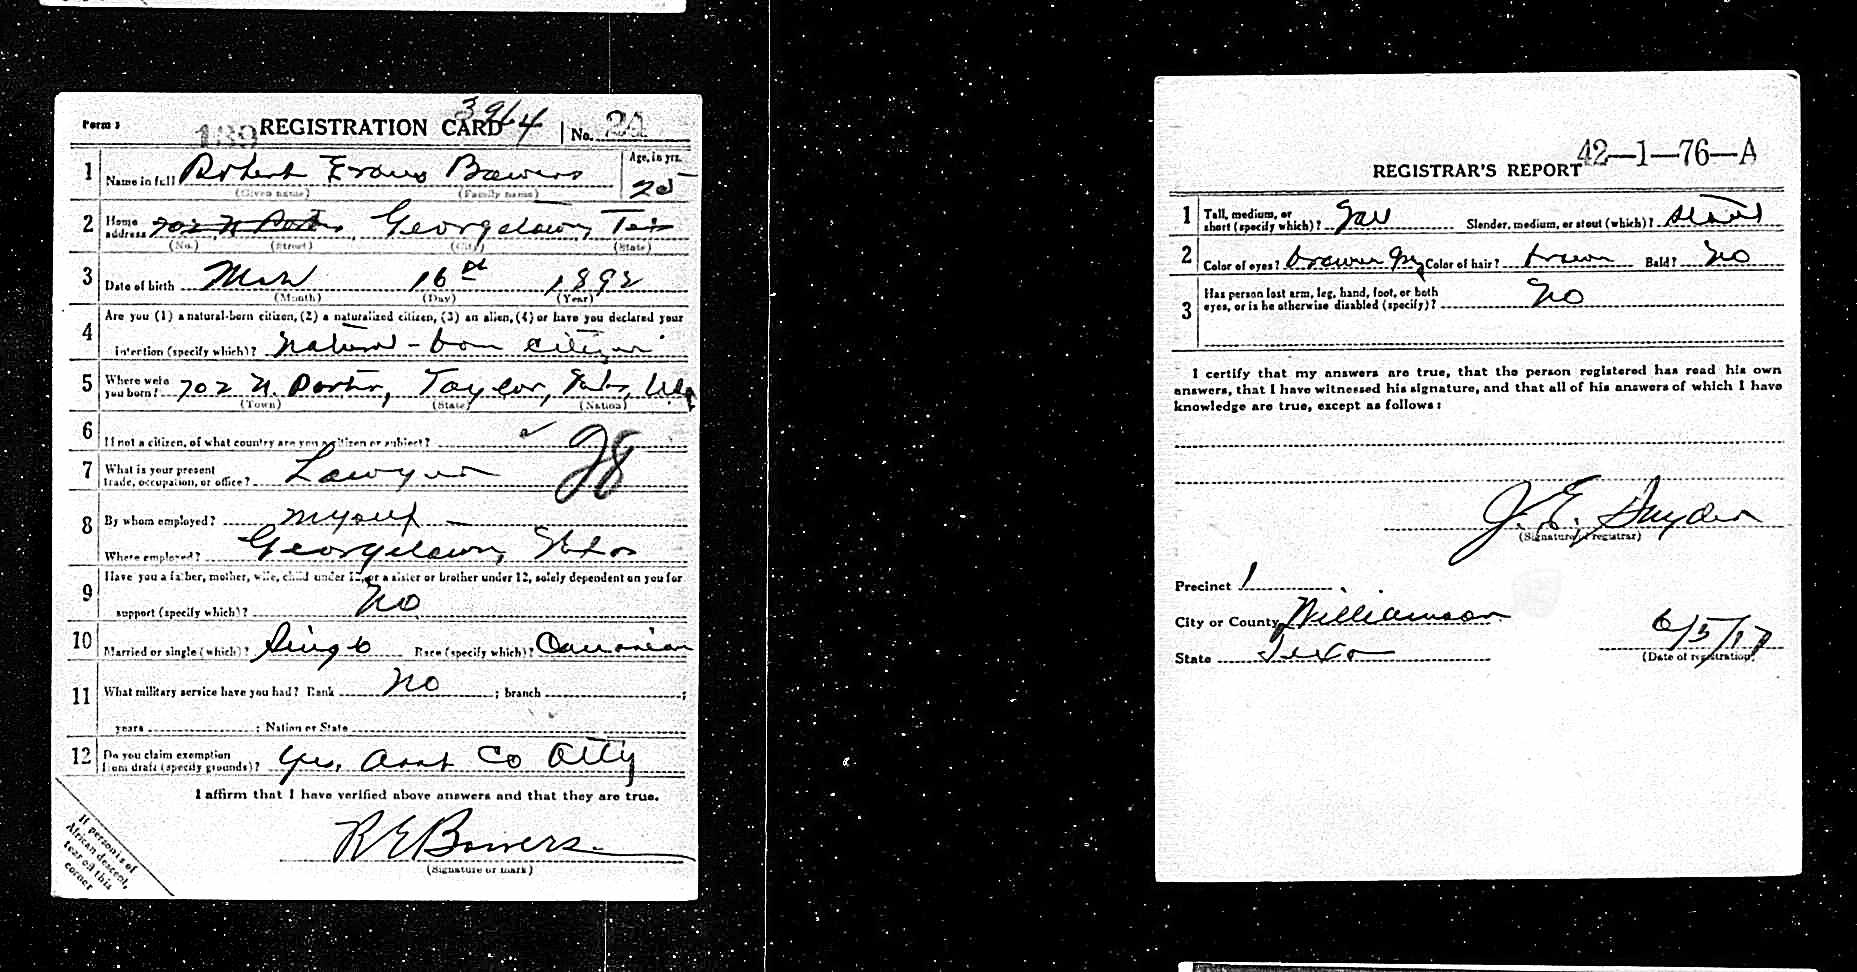 Form 1 189 REGISTRATION CARD 3964 No. 24
1 Name in full Robert Evans Bowers Age, in yrs. 25
(Given name) (Family name)
2 Home address 702 N Porter, Georgetown, Tex
(No.) (Street) (City) (State)
3 Date of birth Mar 16th 1892
(Month) (Day) (Year)
4 Are you (1) a natural-born citizen, (2) a naturalized citizen, (3) an alien, (4) or have you declared your
intention (specify which)? natural-born citizen
5 Where were you born? 702 N. Porter, Taylor, Texas, USA
(Town) (State) (Nation)
6 If not a citizen, of what country are you a citizen or subject?
7 What is your present trade, occupation, or office? Lawyer 28
8 By whom employed? myself
Where employed? Georgetown, Texas
9 Have you a father, mother, wife, child under 12, or a sister or brother under 12, solely dependent on you for
support (specify which)? No
10 Married or single (which)? Single Race (specify which)? Caucasian
11 What military service have you had? Rank No ; branch ;
years ; Nation or State
12 Do you claim exemption from draft (specify grounds)? Yes, Asst Co Atty
I affirm that I have verified above answers and that they are true.
R E Bowers
(Signature or mark)
If person is of
African descent,
tear off this
corner
REGISTRAR'S REPORT 42—1—76—A
1 Tall, medium, or short (specify which)? Tall Slender, medium, or stout (which)? Stout
2 Color of eyes? brown Color of hair? brown Bald? No
3 Has person lost arm, leg, hand, foot, or both
eyes, or is he otherwise disabled (specify)? No
I certify that my answers are true, that the person registered has read his own
answers, that I have witnessed his signature, and that all of his answers of which I have
knowledge are true, except as follows:
J. E. Snyder
(Signature of registrar)
Precinct 1
City or County Williamson
State Texas
6/5/17
(Date of registration)